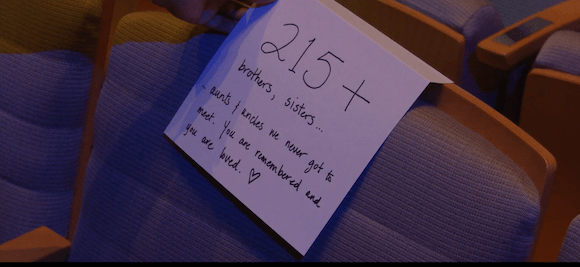 215+
brothers, sisters...
aunts & uncles we never got to
meet. You are remembered and
you are loved. ♡